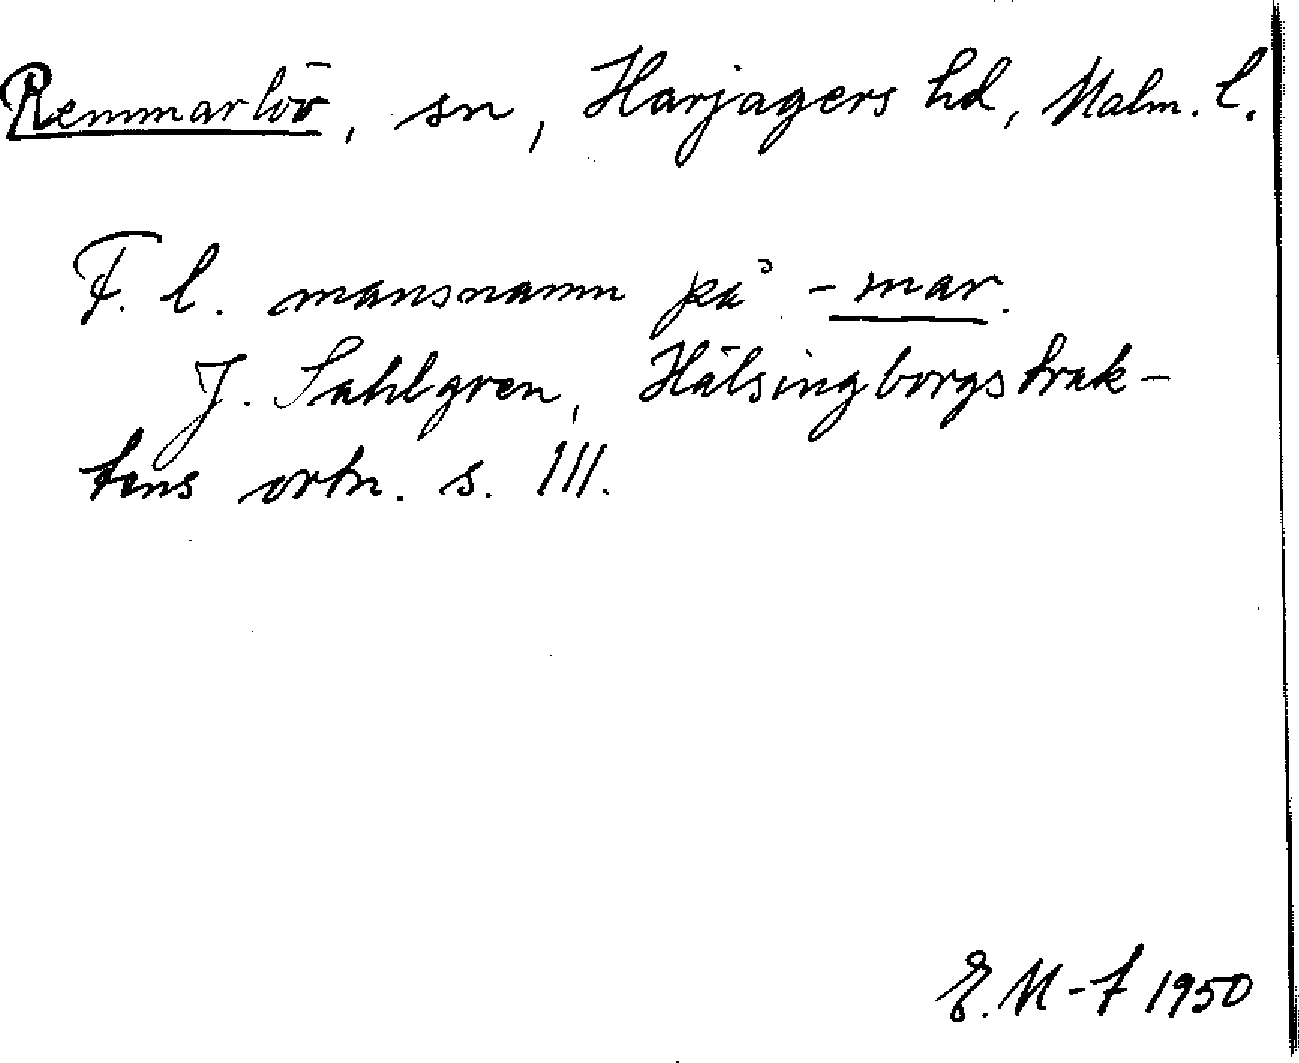 Remmarlöv, sn, Harjagers hd, Malm. l.
F. l. mansnamn på -mar.
J. Sahlgren, Hälsingborgstrak-
tens ortn. s. 111.
E. M-f 1950